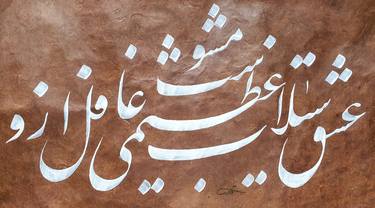 عشق سیلاب عظیمیست مشو غافل ازو